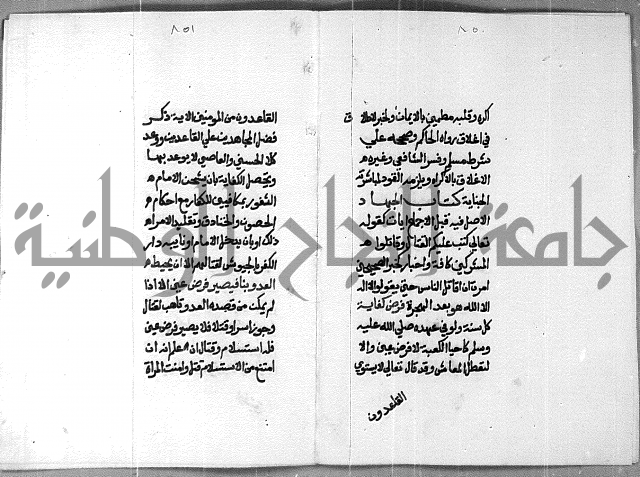 ٨٥٠
أكره وقلبه مطمئن بالايمان ولخبر لا طلاق
في اغلاق رواه الحاكم وصححه علي
شرط مسلم وفسر الشافعي وغيره
الاغلاق بالاكراه ويلزمه القود
الجناية كتاب الجهاد
الاصل فيه قبل الاجماع ايات كقوله
تعالى كتب عليكم القتال وقاتلوا
المشركين كافة واخبار كخبر الصحيحين
امرت ان اقاتل الناس حتى يقولوا لا اله
الا الله هو بعد الهجرة فرض كفاية
كل سنة ولو في عهده صلي الله عليه
وسلم كاحيا الكعبة لا فرض عين والا
لتعطل المعاش وقد قال تعالى لا يستوي
القاعدون
٨٥١
القاعدون من المومنين الاية ذكر
فضل المجاهدين علي القاعدين ووعد
كلا الحسنى والعاصي لا يوعد بها
وتحصل الكفاية بان يشحن الامام
الثغور بمكافيين للكفار مع احكام
الحصون والخنادق وتقليد الامراء
ذلك او بان يدخل الامام او نايبه دار
الكفر بالجيوش لقتالهم الا ان يحيط
العدو بنا فيصير فرض عين الا اذا
لم يمكن من قصده العدو تاهب لقتال
وجوز اسرا وقتلا فلا يصير فرض عين
فله استسلام وقتال ان علم انه ان
امتنع من الاستسلام قتل وامنت المراة
جامعة النجاح الوطنية